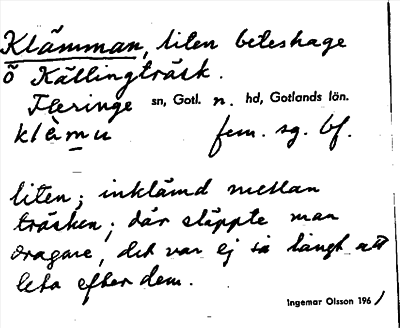 Klämman, liten beteshage
ö Källingträsk.
Fleringe sn, Gotl. n. hd, Gotlands län.
klämu fem. sg. bf.
liten; inklämd mellan
träsken; där släppte man
dragare, det var ej så långt att
leta efter dem.
Ingemar Olsson 1961